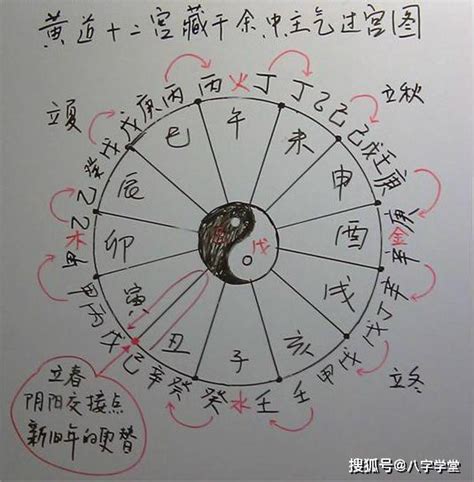 黄道十二宫藏干余中主气过宫图
丙 火 丁
丙 丁
庚 乙
戊 己
立夏
立秋
巳 午 未
戊 己
癸 戊
乙 壬
辰 申 庚
乙
木 卯 酉 金
甲 辛
甲 寅 戌 辛
丙 丁
戊 戊
己 丑 子 亥 甲
辛 癸 癸 水 壬 壬
立冬
戊
立春
阴阳交接点
新旧年的更替
搜狐号@八字学堂